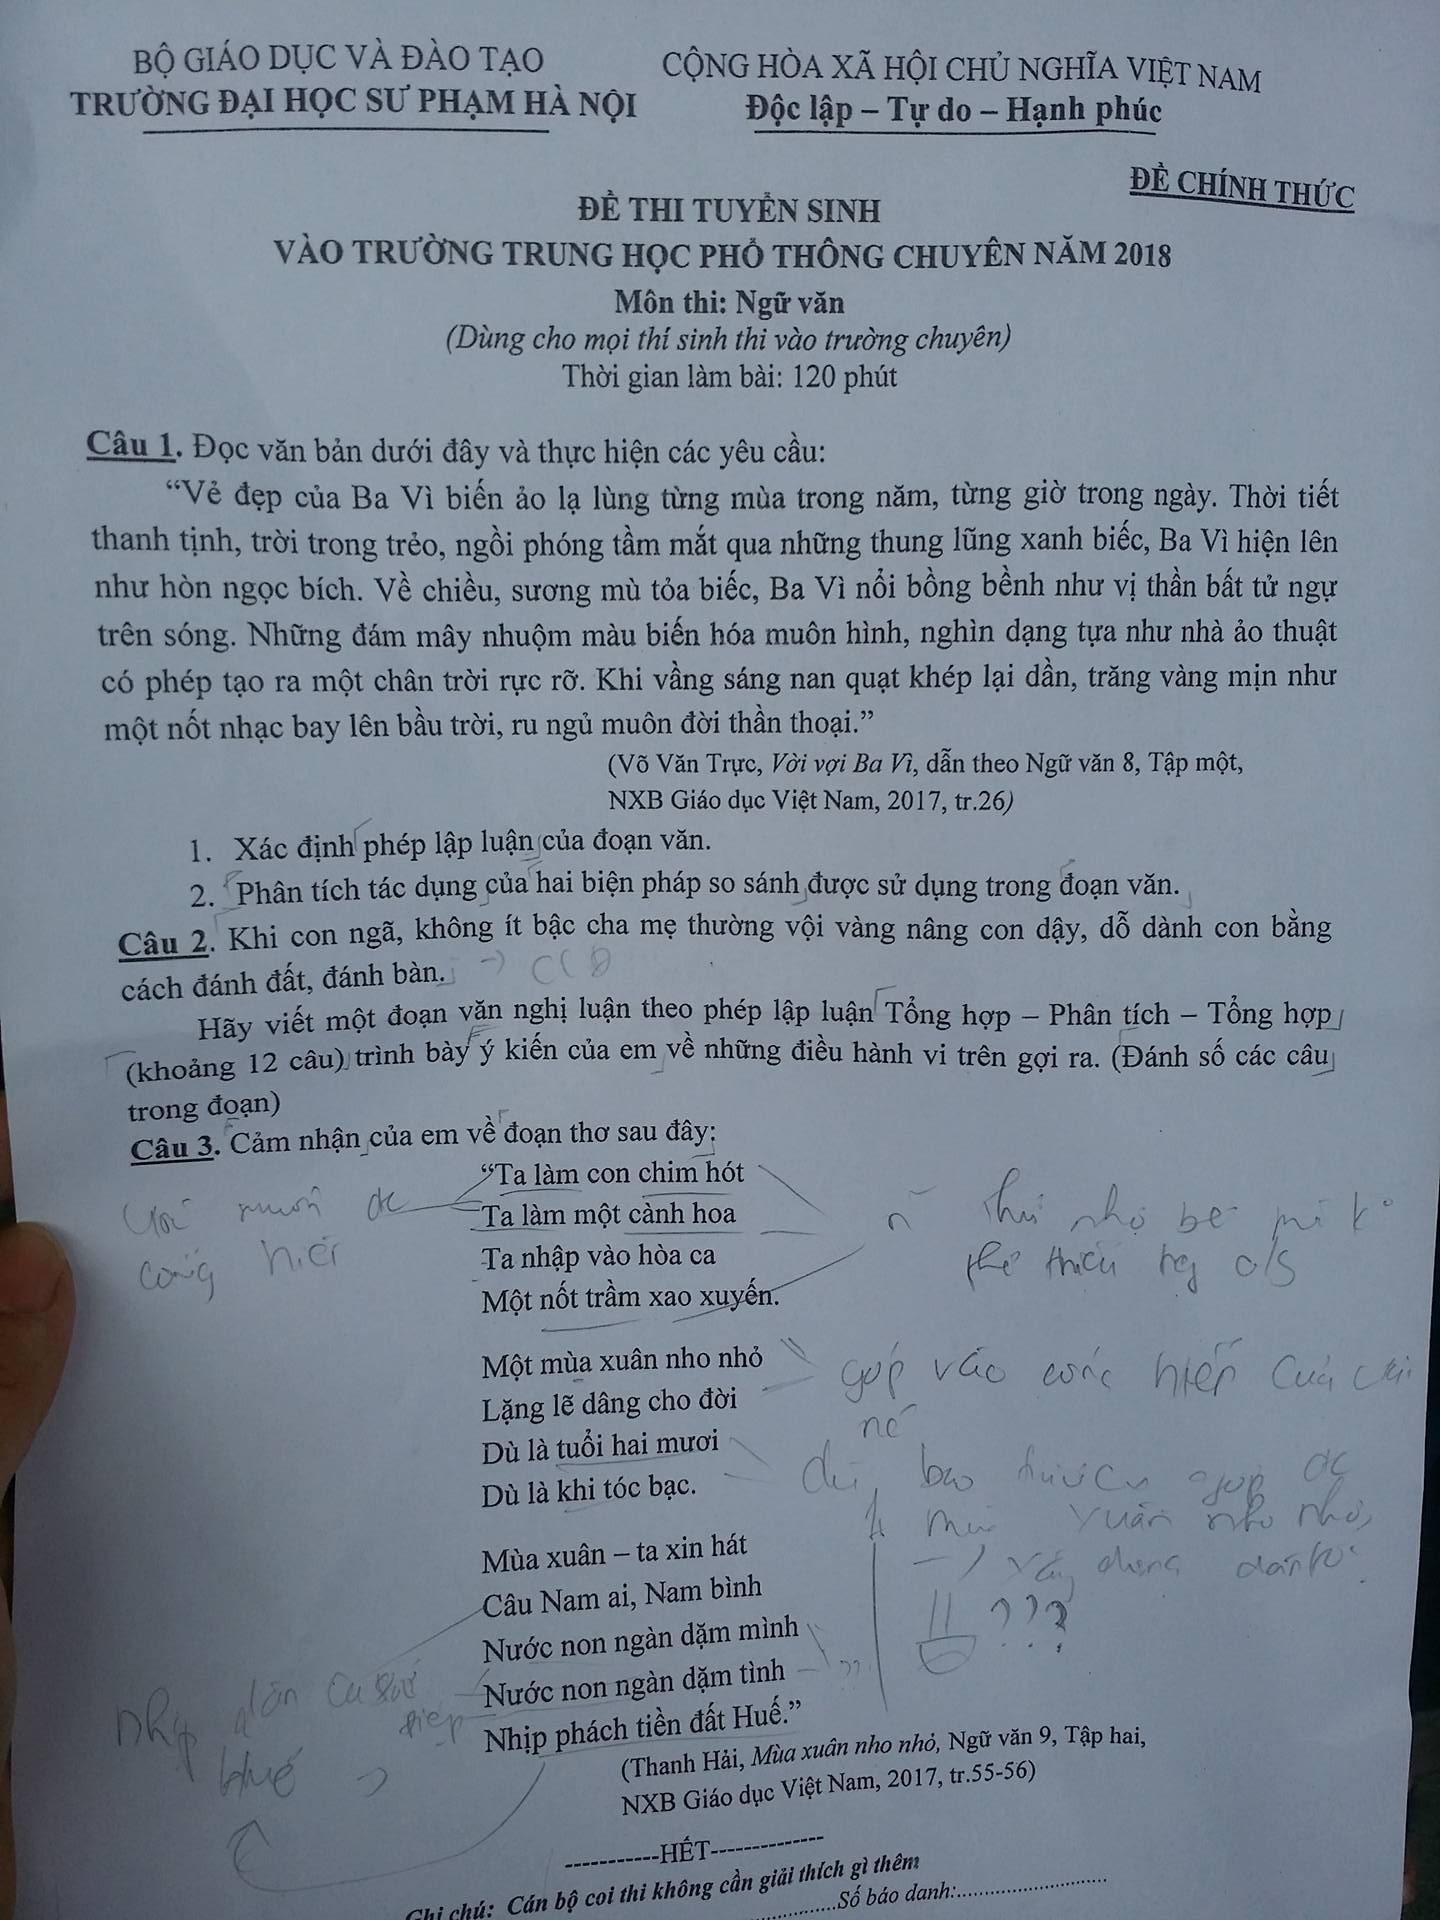 BỘ GIÁO DỤC VÀ ĐÀO TẠO
TRƯỜNG ĐẠI HỌC SƯ PHẠM HÀ NỘI
CỘNG HÒA XÃ HỘI CHỦ NGHĨA VIỆT NAM
Độc lập – Tự do – Hạnh phúc
ĐỀ CHÍNH THỨC
ĐỀ THI TUYỂN SINH
VÀO TRƯỜNG TRUNG HỌC PHỔ THÔNG CHUYÊN NĂM 2018
Môn thi: Ngữ văn
(Dùng cho mọi thí sinh thi vào trường chuyên)
Thời gian làm bài: 120 phút
Câu 1. Đọc văn bản dưới đây và thực hiện các yêu cầu:
“Vẻ đẹp của Ba Vì biến ảo lạ lùng từng mùa trong năm, từng giờ trong ngày. Thời tiết
thanh tịnh, trời trong trẻo, ngồi phóng tầm mắt qua những thung lũng xanh biếc, Ba Vì hiện lên
như hòn ngọc bích. Về chiều, sương mù tỏa biếc, Ba Vì nổi bồng bềnh như vị thần bất tử ngự
trên sóng. Những đám mây nhuộm màu biến hóa muôn hình, nghìn dạng tựa như nhà ảo thuật
có phép tạo ra một chân trời rực rỡ. Khi vầng sáng nan quạt khép lại dần, trăng vàng mịn như
một nốt nhạc bay lên bầu trời, ru ngủ muôn đời thần thoại.”
(Võ Văn Trực, Vời vợi Ba Vì, dẫn theo Ngữ văn 8, Tập một,
NXB Giáo dục Việt Nam, 2017, tr.26)
1. Xác định phép lập luận của đoạn văn.
2. Phân tích tác dụng của hai biện pháp so sánh được sử dụng trong đoạn văn.
Câu 2. Khi con ngã, không ít bậc cha mẹ thường vội vàng nâng con dậy, dỗ dành con bằng
cách đánh đất, đánh bàn.
Hãy viết một đoạn văn nghị luận theo phép lập luận Tổng hợp – Phân tích – Tổng hợp
(khoảng 12 câu) trình bày ý kiến của em về những điều hành vi trên gợi ra. (Đánh số các câu
trong đoạn)
Câu 3. Cảm nhận của em về đoạn thơ sau đây:
“Ta làm con chim hót
Ta làm một cành hoa
Ta nhập vào hòa ca
Một nốt trầm xao xuyến.
muốn đc
cống hiến
nhỏ bé
Một mùa xuân nho nhỏ
Lặng lẽ dâng cho đời
Dù là tuổi hai mươi
Dù là khi tóc bạc.
góp vào cống hiến của
xuân nho nhỏ
Mùa xuân – ta xin hát
Câu Nam ai, Nam bình
Nước non ngàn dặm mình
Nước non ngàn dặm tình
Nhịp phách tiền đất Huế.”
???
dân ca
Huế
(Thanh Hải, Mùa xuân nho nhỏ, Ngữ văn 9, Tập hai,
NXB Giáo dục Việt Nam, 2017, tr.55-56)
-----------HẾT--------------
Ghi chú: Cán bộ coi thi không cần giải thích gì thêm
Số báo danh: